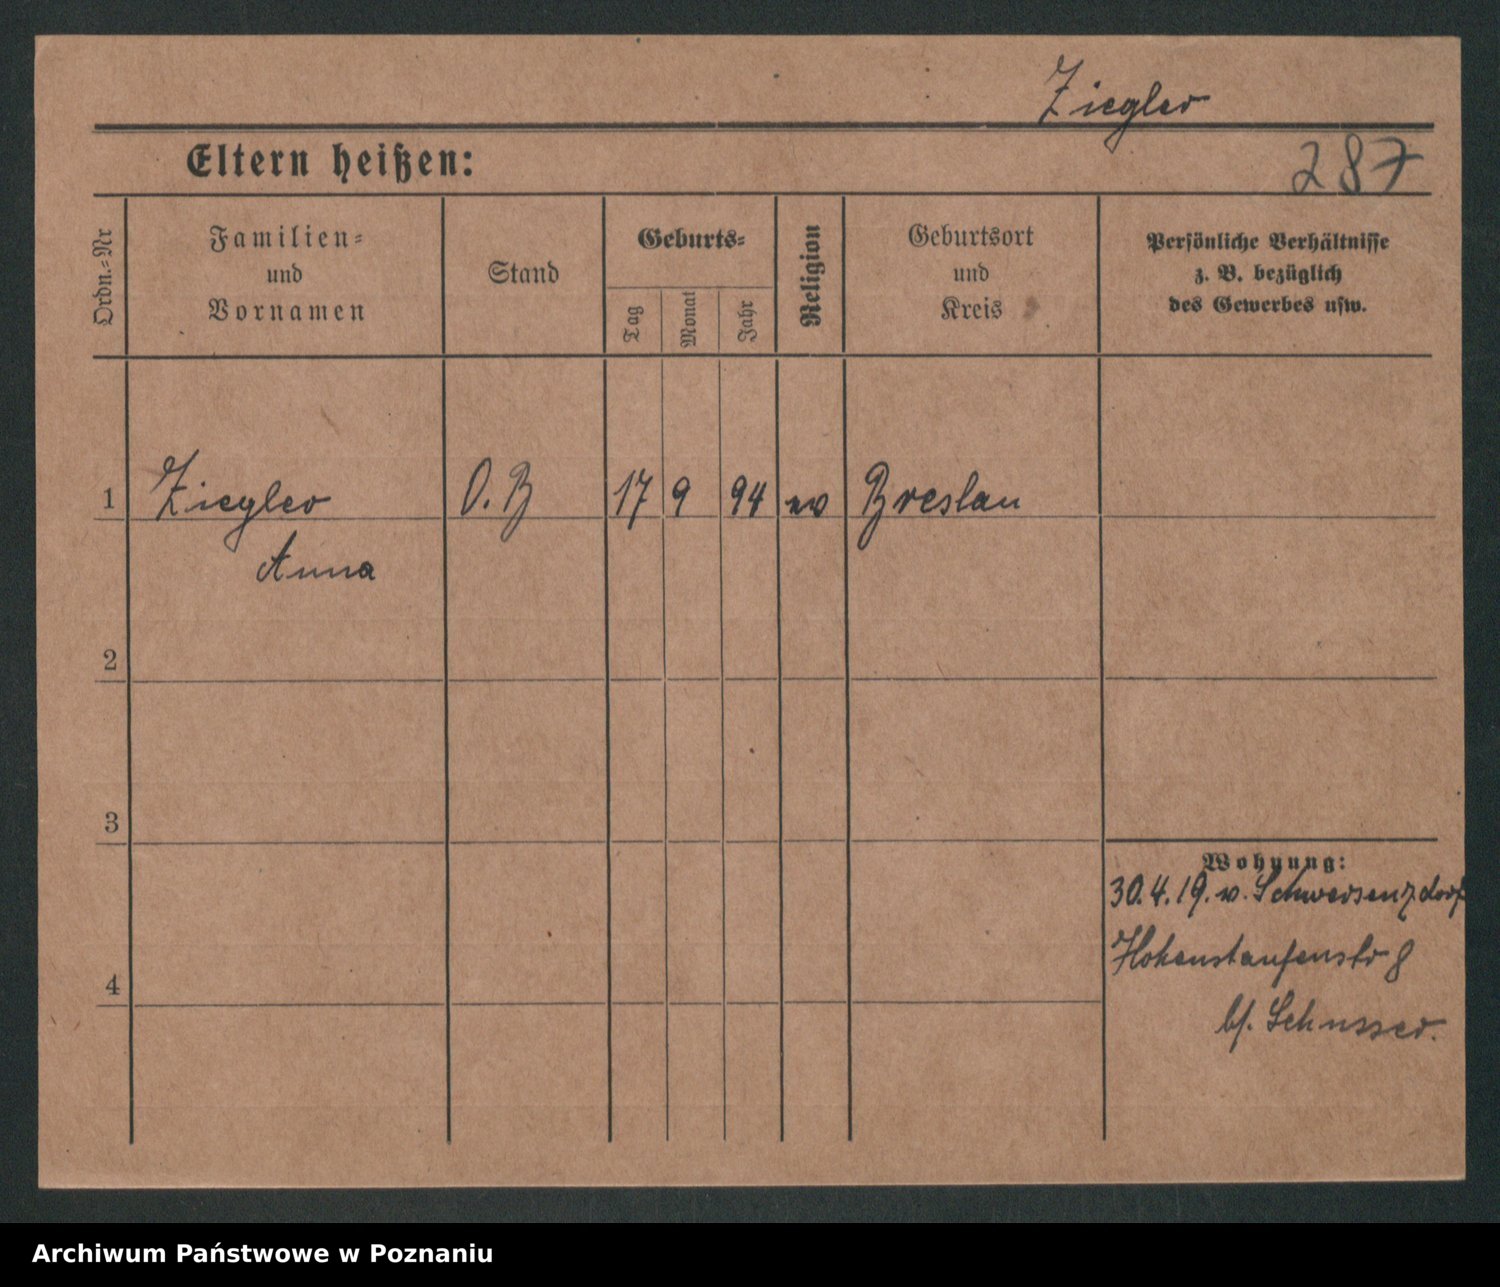 Ziegler
Eltern heißen:
287
Ordn.=Nr
Familien=
und
Vornamen
Stand
Geburts=
Tag
Monat
Jahr
Religion
Geburtsort
und
Kreis
Persönliche Verhältnisse
z. B. bezüglich
des Gewerbes usw.
1
Ziegler
O. B
17
9
94
ev
Breslau
Anna
2
3
Wohnung:
30.4.19. v.
Hohenstaufenstr 8
4
b/.
Archiwum Państwowe w Poznaniu